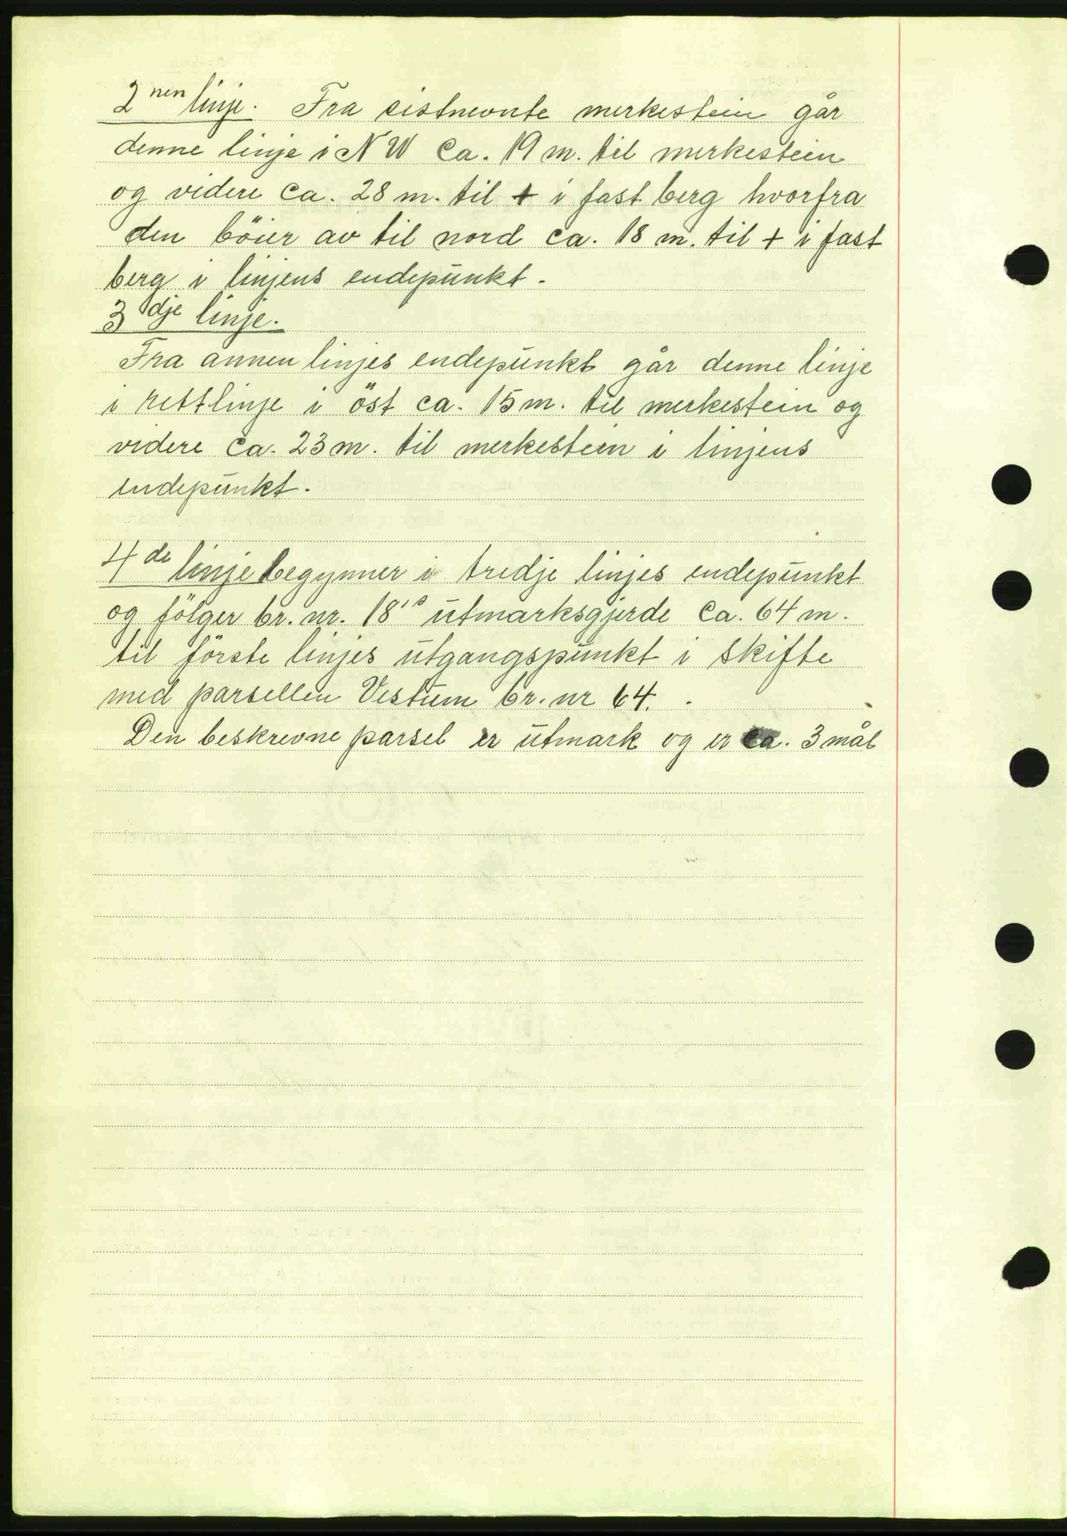 2nen linje. Fra sistnevnte merkestein går
denne linje i NW ca. 19 m. til merkestein
og videre ca. 28 m. til + i fast berg hvorfra
den böier av til nord ca. 18 m. til + i fast
berg i linjens endepunkt.
3dje linje.
Fra annen linjes endepunkt går denne linje
i rettlinje i öst ca. 15 m. til merkestein og
videre ca. 23 m. til merkestein i linjens
endepunkt.
4de linje begynner i tredje linjes endepunkt
og fölger br. nr. 18's utmarksgjerde ca. 64 m.
til förste linjes utgangspunkt i skifte
med parsellen Vestum br. nr 64.
Den beskrevne parsel er utmark og er ca. 3 mål